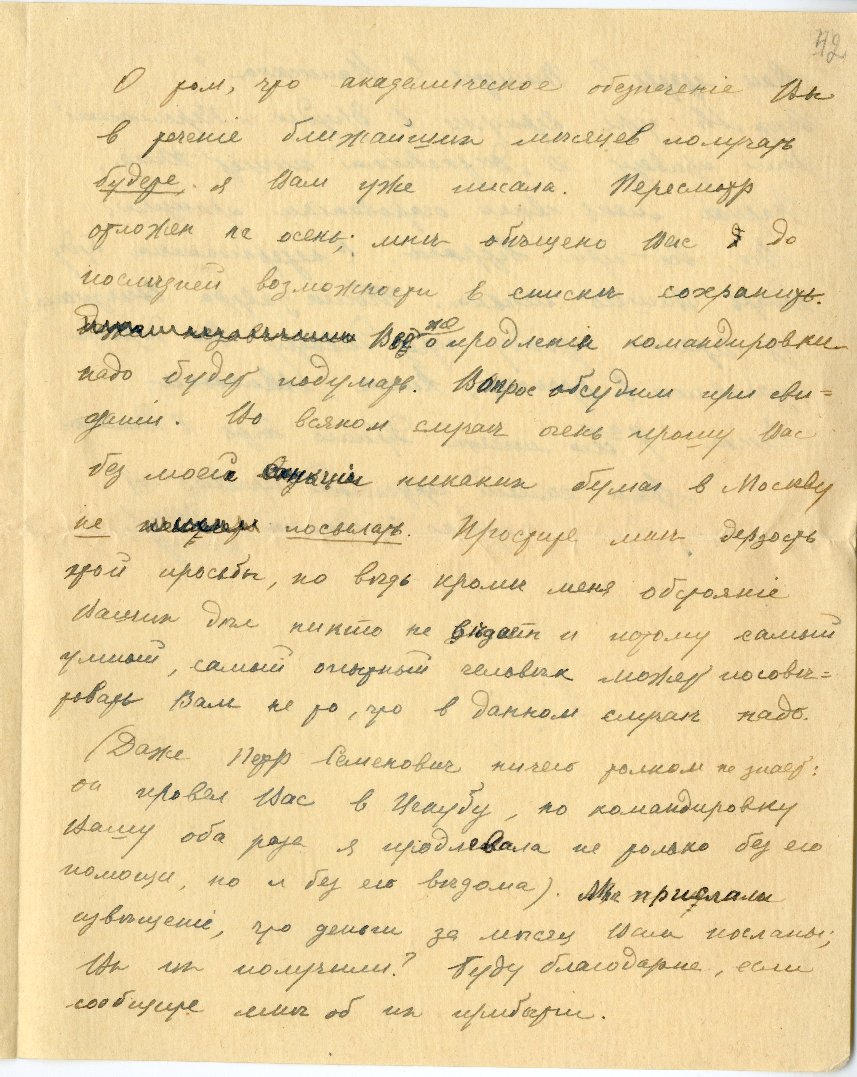 42
О том, что академическое обезпеченіе Вы
в теченіе ближайших мѣсяцев получать
будете я Вам уже писала. Пересмотр
отложен на осень; мнѣ обѣщано Вас до
послѣдней возможности в спискѣ сохранить.
же о продленіи командировки
надо будет подумать. Вопрос обсудим при сви=
даніи. Во всяком случаѣ очень прошу Вас
без моей санкціи никаких бумаг в Москву
не посылать. Простите мнѣ дерзость
этой просьбы, но вѣдь кромѣ меня обстояніе
Ваших дѣл никто не видает и потому самый
умный, самый опытный человѣк может посовѣ=
товать Вам не то, что в данном случаѣ надо.
(Даже Петр Семенович ничего толком не знает:
он провел Вас в Цекубу, но командировку
Вашу оба раза я продлевала не только без его
помощи, но и без его вѣдома). Мнѣ прислали
извѣщеніе, что деньги за мѣсяц Вам посланы;
Вы их получили? Буду благодарна, если
сообщите мнѣ об их прибытіи.